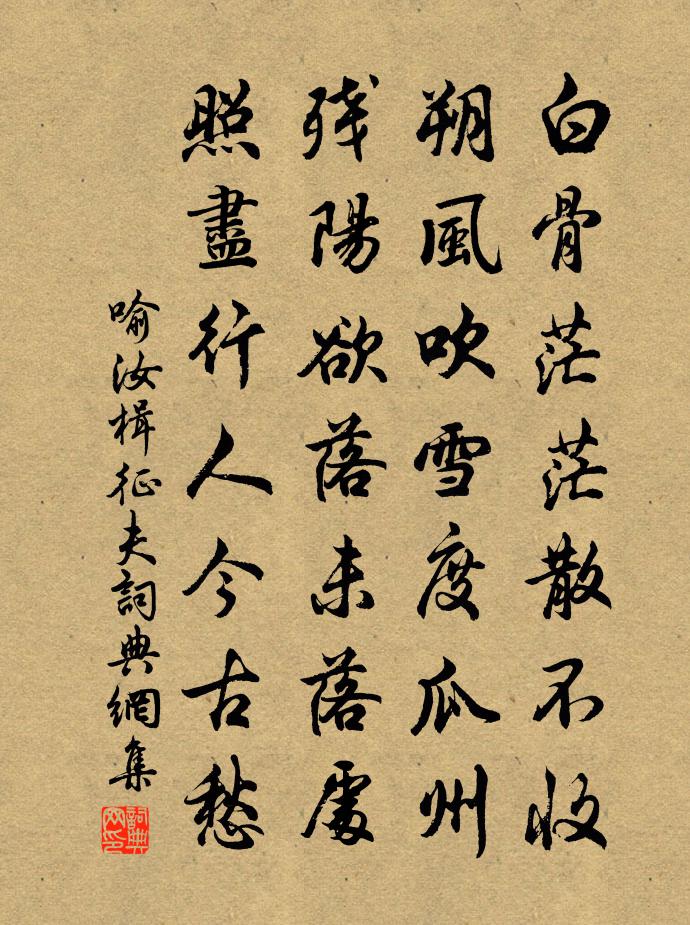 白骨茫茫散不收
朔風吹雪度瓜州
残陽欲落未落處
照盡行人今古愁
喻汝楫征夫詞典網集
詞典網印